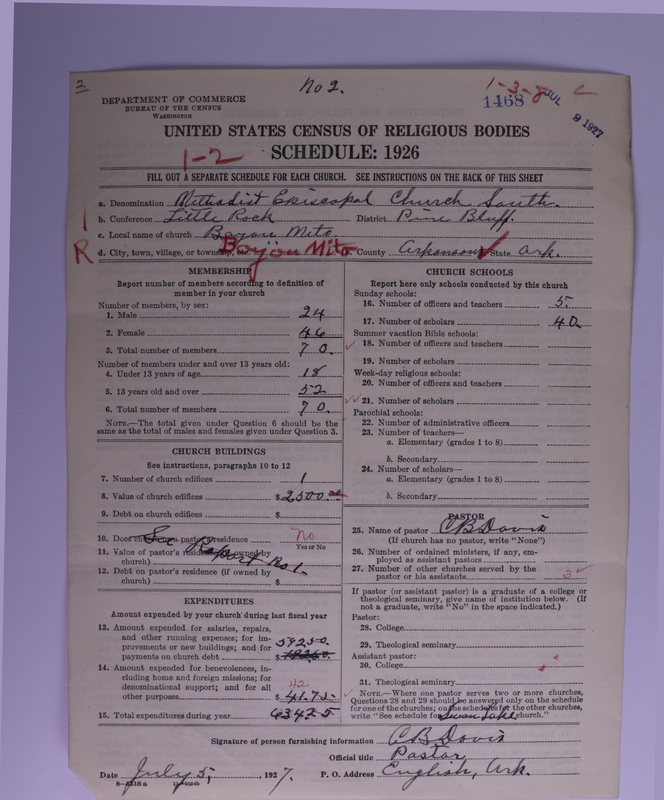 2
No 2.
1-3-8 c
1468
JUL 9 1927
DEPARTMENT OF COMMERCE
BUREAU OF THE CENSUS
WASHINGTON
UNITED STATES CENSUS OF RELIGIOUS BODIES
1-2
SCHEDULE: 1926
FILL OUT A SEPARATE SCHEDULE FOR EACH CHURCH. SEE INSTRUCTIONS ON THE BACK OF THIS SHEET
a. Denomination Methodist Episcopal Church South.
b. Conference Little Rock District Pine Bluff.
c. Local name of church Bayou Meto
R
d. City, town, village, or township Bayou Meto County Arkansas State Ark.
MEMBERSHIP
Report number of members according to definition of
member in your church
Number of members, by sex:
1. Male 24
2. Female 46
3. Total number of members 70.
Number of members under and over 13 years old:
4. Under 13 years of age 18
5. 13 years old and over 52
6. Total number of members 70.
NOTE.—The total given under Question 6 should be the
same as the total of males and females given under Question 3.
CHURCH BUILDINGS
See instructions, paragraphs 10 to 12
7. Number of church edifices 1
8. Value of church edifices $2500.00
9. Debt on church edifices $
10. Does church own pastor's residence No
Yes or No
See Report No 1.
11. Value of pastor's residence (if owned by
church) $
12. Debt on pastor's residence (if owned by
church) $
EXPENDITURES
Amount expended by your church during last fiscal year
13. Amount expended for salaries, repairs,
and other running expenses; for im-
provements or new buildings; and for
payments on church debt $ 592.50
14. Amount expended for benevolences, in-
cluding home and foreign missions; for
denominational support; and for all 42
other purposes $ 41.75
15. Total expenditures during year 634.25
CHURCH SCHOOLS
Report here only schools conducted by this church
Sunday schools:
16. Number of officers and teachers 5.
17. Number of scholars 40
Summer vacation Bible schools:
18. Number of officers and teachers
19. Number of scholars
Week-day religious schools:
20. Number of officers and teachers
21. Number of scholars
Parochial schools:
22. Number of administrative officers
23. Number of teachers—
a. Elementary (grades 1 to 8)
b. Secondary
24. Number of scholars—
a. Elementary (grades 1 to 8)
b. Secondary
PASTOR
25. Name of pastor C B Davis
(If church has no pastor, write "None")
26. Number of ordained ministers, if any, em-
ployed as assistant pastors
27. Number of other churches served by the
pastor or his assistants 3
If pastor (or assistant pastor) is a graduate of a college or
theological seminary, give name of institution below. (If
not a graduate, write "No" in the space indicated.)
Pastor:
28. College
29. Theological seminary
Assistant pastor:
30. College
31. Theological seminary
NOTE.—Where one pastor serves two or more churches,
Questions 28 and 29 should be answered only on the schedule
for one of the churches; on the schedules for the other churches,
write "See schedule for Swan Lake church."
Signature of person furnishing information C B Davis
Official title Pastor
Date July 5, 1927. P. O. Address English, Ark.